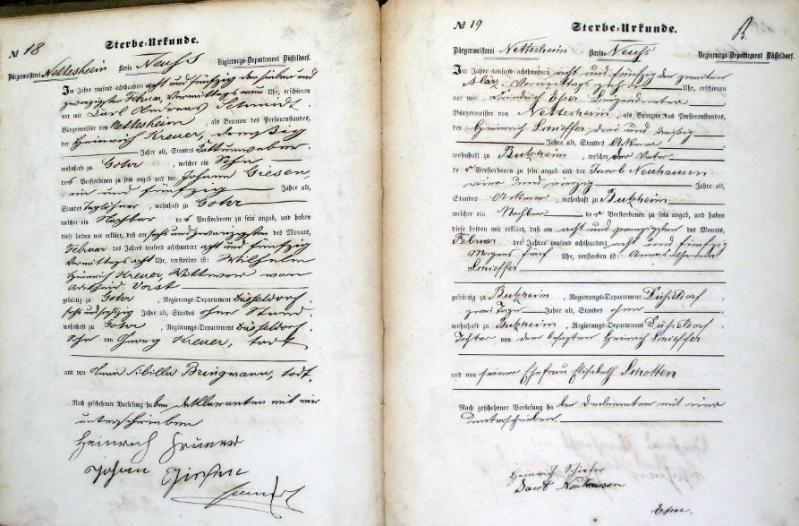 № 18
Sterbe-Urkunde.
Bürgermeisterei Nettesheim Kreis Neuss Regierungs-Departement Düsseldorf.
Im Jahre tausend achthundert acht und fünfzig den sieben und
zwanzigsten Februar, Vormittags neun Uhr, erschienen
vor mir Carl Schmidt,
Bürgermeister von Nettesheim, als Beamten des Personenstandes,
der Heinrich Kreuer, dreißig
Jahre alt, Standes
wohnhaft zu Gohr, welcher ein Sohn
des Verstorbenen zu sein angab und der Johann Giesen,
ein und fünfzig Jahre alt,
Standes Taglöhner, wohnhaft zu Gohr
welcher ein Nachbar des Verstorbenen zu sein angab, und haben
diese beiden mir erklärt, daß am sechs und zwanzigsten des Monats,
Februar des Jahres tausend achthundert acht und fünfzig
Vormittags acht Uhr, verstorben ist: Wilhelm
Heinrich Kreuer, Wittwer von
Adelheid Vorst
gebürtig zu Gohr, Regierungs-Departement Düsseldorf,
sechs und sechzig Jahre alt, Standes ohne Stand,
wohnhaft zu Gohr, Regierungs-Departement Düsseldorf,
Sohn von Georg Kreuer, todt
und von Anna Sibilla Bringmann, todt.
Nach geschehener Vorlesung haben Deklaranten mit mir
unterschrieben
Heinrich
Johan Giesen
№ 19
Sterbe-Urkunde.
Bürgermeisterei Nettesheim Kreis Neuss Regierungs-Departement Düsseldorf.
Im Jahre tausend achthundert acht und fünfzig den zweiten
März, Vormittags zehn Uhr, erschienen
vor mir Friedrich Esser
Bürgermeister von Nettesheim, als Beamten des Personenstandes,
der Heinrich Schieffer drei und dreißig
Jahre alt, Standes Ackerer
wohnhaft zu Butzheim, welcher der Vater
der Verstorbenen zu sein angab und der Jacob Neuhausen
vier und vierzig Jahre alt,
Standes Ackerer, wohnhaft zu Butzheim
welcher ein Nachbar der Verstorbenen zu sein angab, und haben
diese beiden mir erklärt, daß am acht und zwanzigsten des Monats,
Februar des Jahres tausend achthundert acht und fünfzig
Morgens fünf Uhr, verstorben ist: Anna
Schieffer
gebürtig zu Butzheim, Regierungs-Departement Düsseldorf
zwei Tage Jahre alt, Standes ohne
wohnhaft zu Butzheim, Regierungs-Departement Düsseldorf
Tochter von dem besagten Heinrich Schieffer
und von seiner Ehefrau Elisabeth Schotten
Nach geschehener Vorlesung haben Declaranten mit mir
unterschrieben.
Heinrich Schiefer
Jacob Neuhausen
Esser